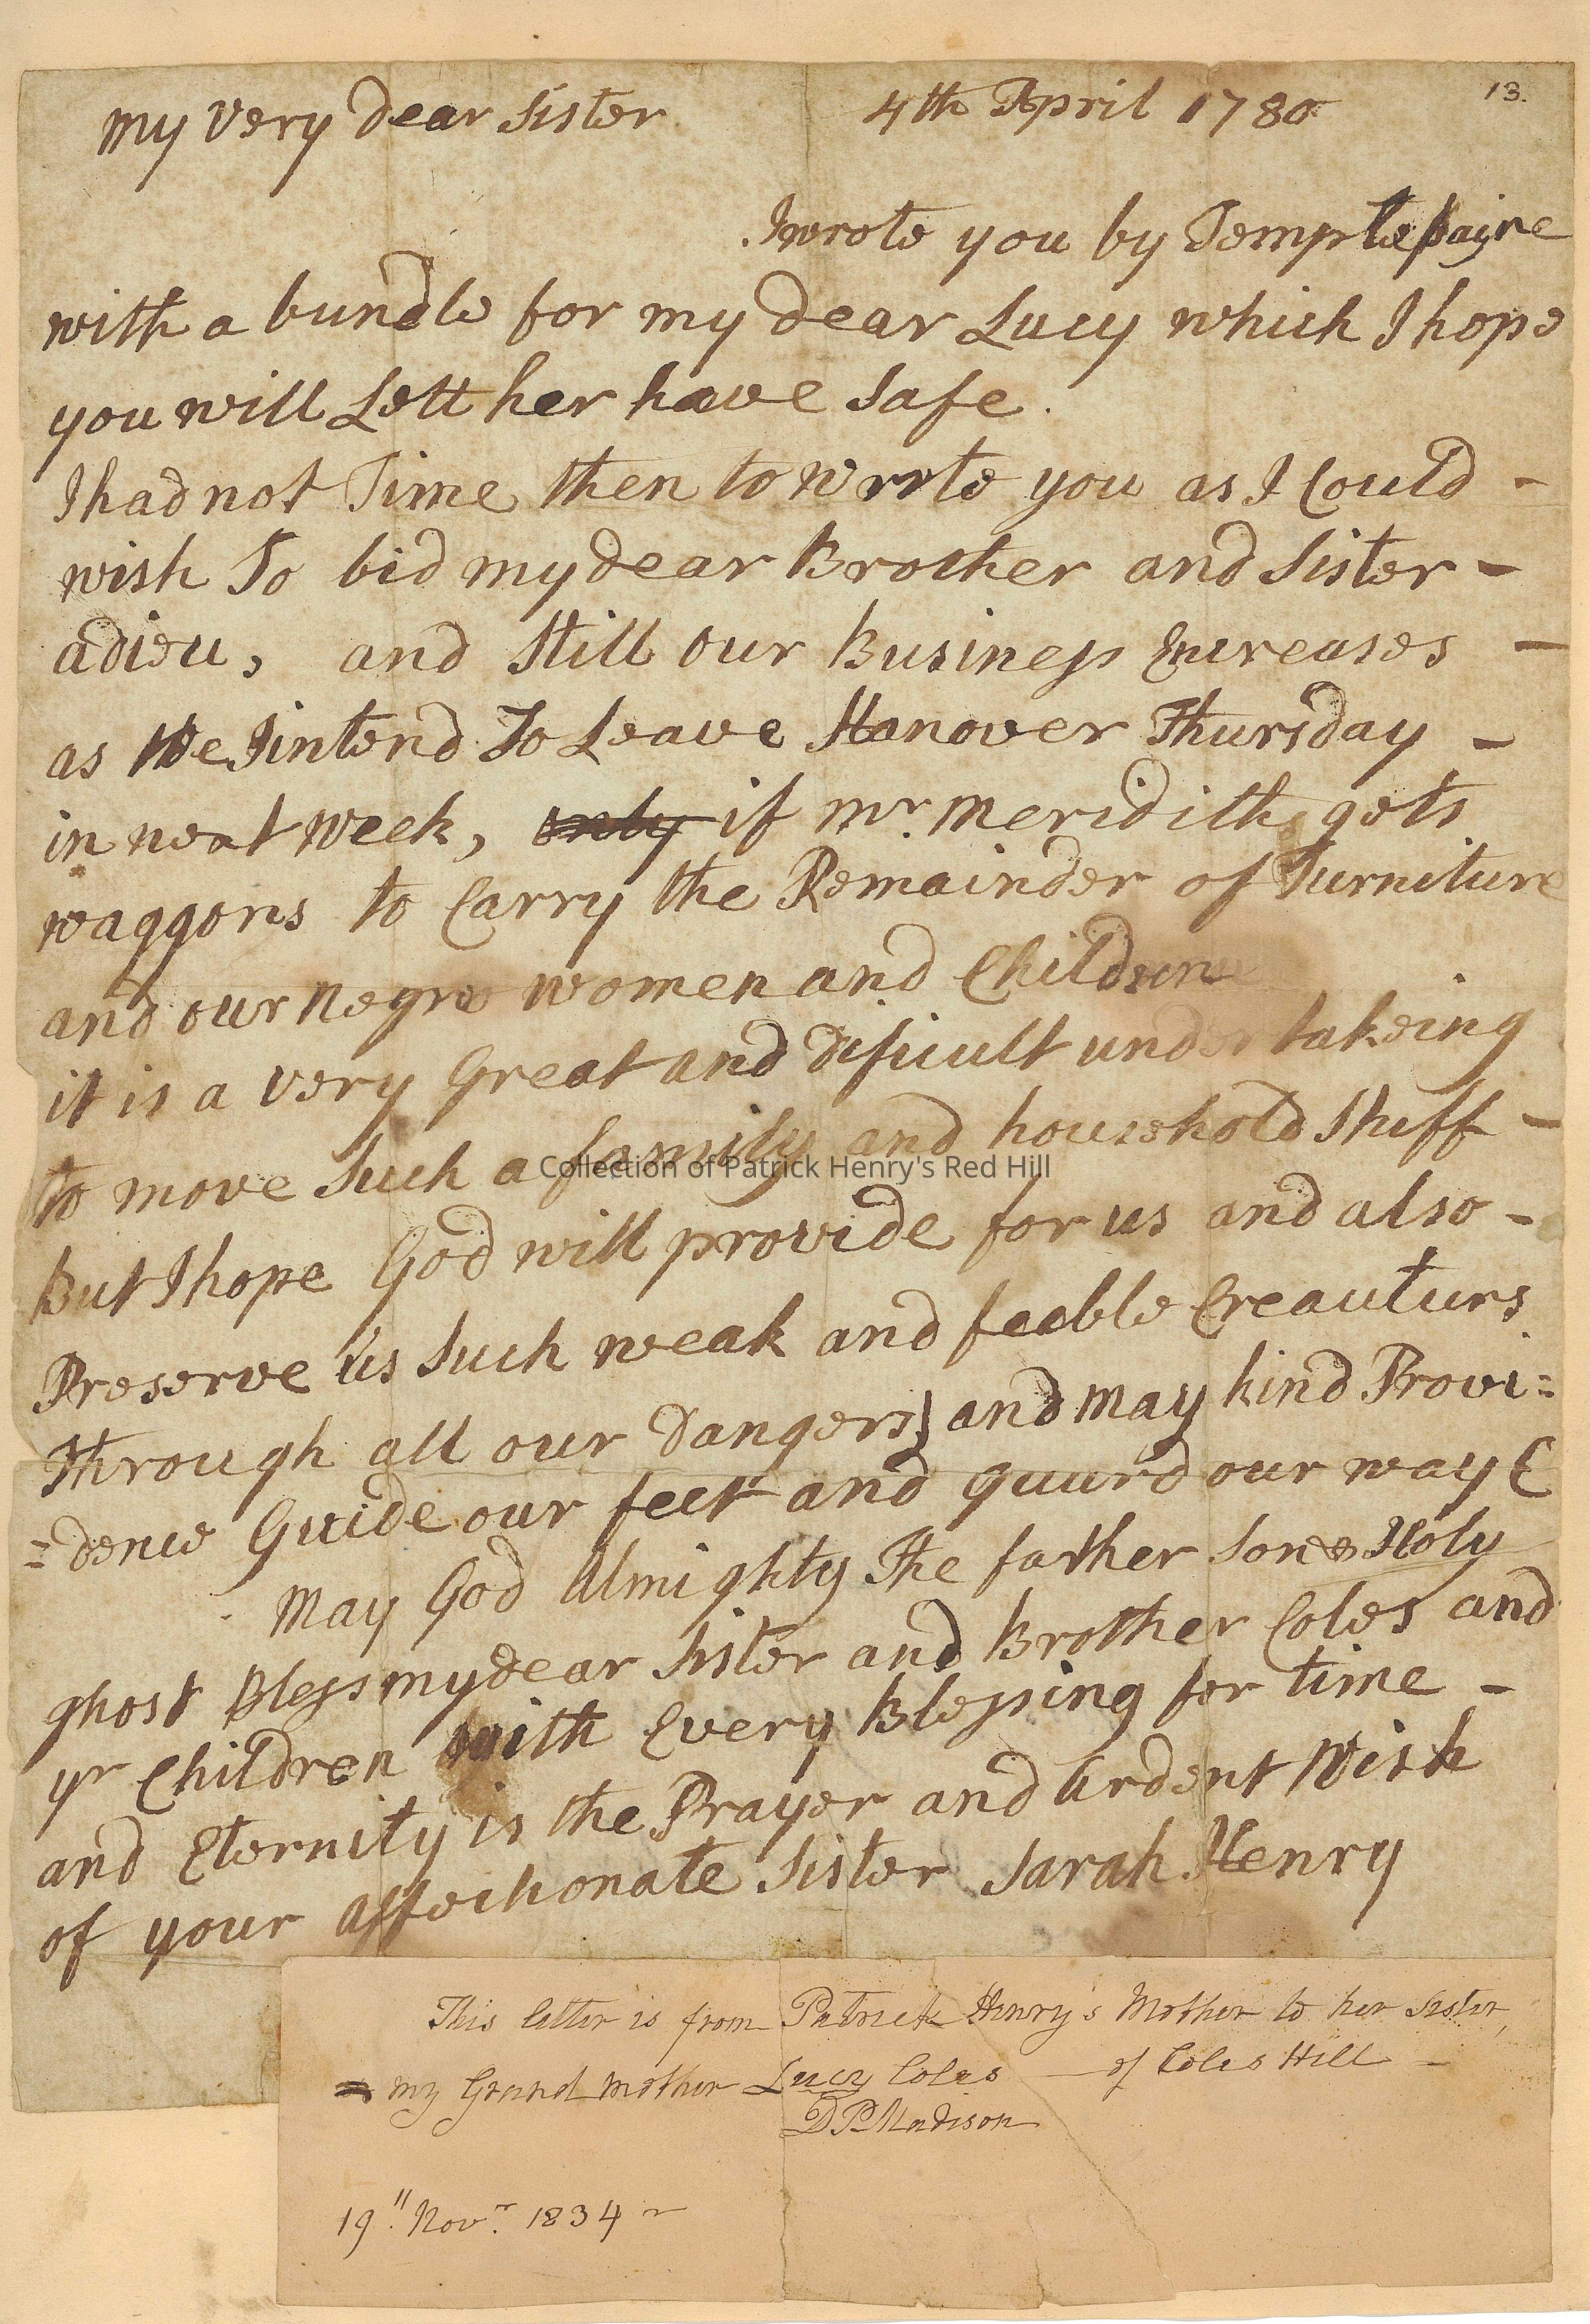 13.
My very dear Sister 4th April 1780
I wrote you by Temple payne
with a bundle for my dear Lucy which I hope
you will Lett her have Safe.
I had not Time then to wrote you as I Could -
wish To bid my dear Brother and Sister -
adieu, and Still our Business Encreases -
as We Iintend To Leave Hanover Thursday -
in next week, only if Mr. Meridith gets
waggons to Carry the Remainder of Furniture
and our Negro women and Children
it is a very Great and Dificult undertakeing
to move Such a family and household Stuff -
But I hope God will provide for us and also -
Preserve us Such weak and feeble Creauturs
Through all our Dangers; and may kind Provi=
=dence Guide our feet and guurd our way
May God Almighty The father Son & Holy
ghost Bless my dear Sister and Brother Coles and
yr Children with Every Blessing for time -
and Eternity is the Prayer and Ardent Wish
of your affectionate Sister Sarah Henry
Collection of Patrick Henry's Red Hill
This letter is from Patrick Henry's Mother to her Sister,
my Grand mother Lucy Coles — of Coles Hill —
D P Madison
19" Novr. 1834